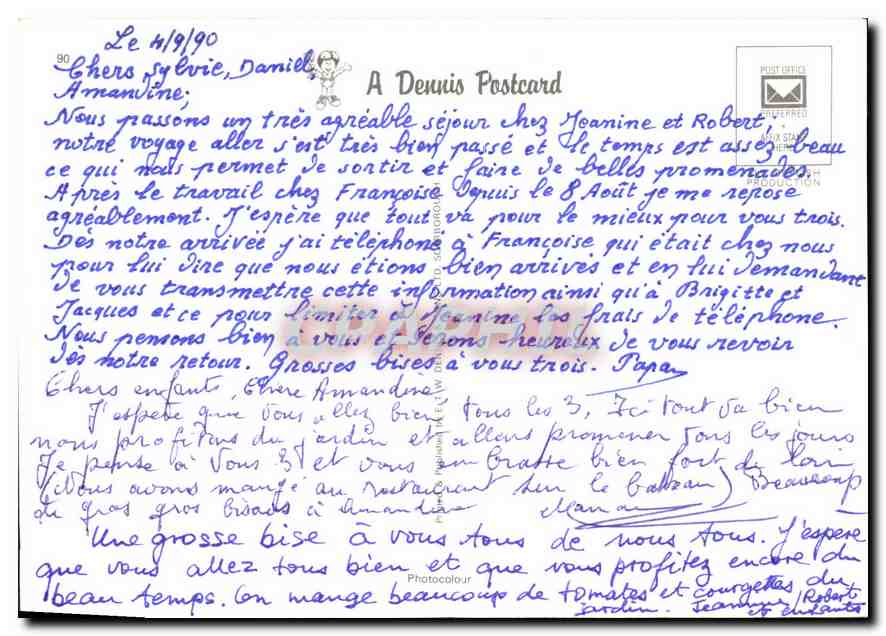 Le 4/9/90
90
Chers Sylvie, Daniel,
Amandine,
A Dennis Postcard
POST OFFICE
PREFERRED
AFFIX STAMP
HERE
PRODUCTION
Nous passons un très agréable séjour chez Jeanine et Robert,
notre voyage aller s'est très bien passé et le temps est assez beau
ce qui nous permet de sortir et faire de belles promenades.
Après le travail chez Françoise depuis le 8 Août je me repose
agréablement. J'espère que tout va pour le mieux pour vous trois.
Dès notre arrivée j'ai téléphoné à Françoise qui était chez nous
pour lui dire que nous étions bien arrivés et en lui demandant
de vous transmettre cette information ainsi qu'à Brigitte et
Jacques et ce pour limiter à Jeanine les frais de téléphone.
Nous pensons bien à vous et serons heureux de vous revoir
dès notre retour. Grosses bises à vous trois. Papa
Chers enfants, Chère Amandine
J'espère que vous allez bien tous les 3, Ici tout va bien
nous profitons du jardin et allons promener tous les jours
Je pense à vous 3 et vous embrasse bien fort de loin
(Nous avons mangé au restaurant sur le bateau) Beaucoup
de gros gros bisous à Amandine Maman
Une grosse bise à vous tous de nous tous. J'espère
que vous allez tous bien et que vous profitez encore du
beau temps. On mange beaucoup de tomates et courgettes du
jardin. Jeanine, Robert
et enfants
Photocolour